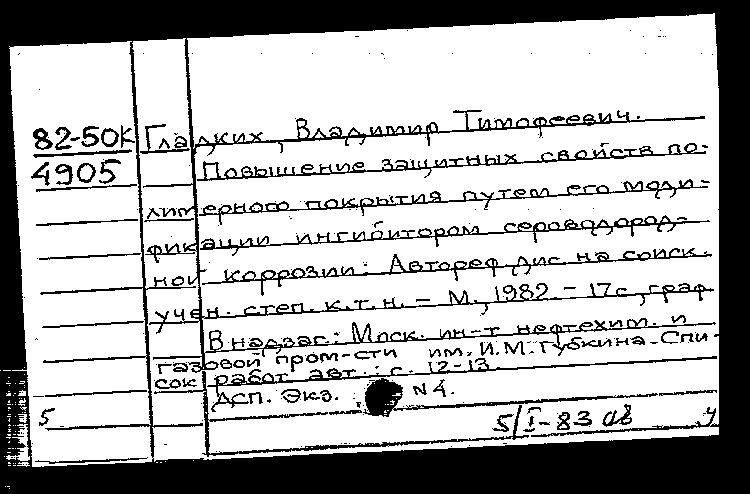 82-50К Гладких, Владимир Тимофеевич.
4905 Повышение защитных свойств по-
лимерного покрытия путем его моди-
фикации ингибитором сероводород-
ной коррозии: Автореф дис на соиск.
учен. степ. к.т.н. – М., 1982. – 17с, граф
В надзаг: Моск. ин-т нефтехим. и
газовой пром-сти им. И.М. Губкина. Спи-
сок работ авт.: с. 12-13.
ДСП. Экз. N4.
5 5/I-83